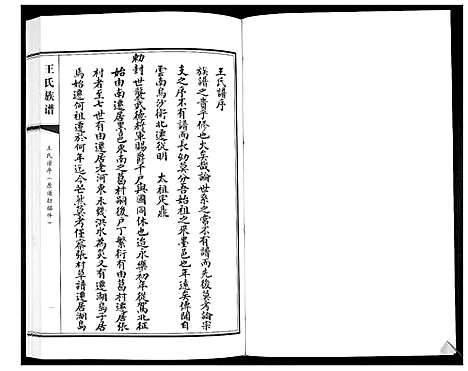 王氏譜序
族譜之貴乎修也大矣哉論世系之常不有譜而先後莫考論宗
支之序不有譜而長幼莫分吾始祖之來墨邑也年遠矣傳聞自
雲南烏沙衛北遷從明　太祖定鼎
勅封世襲武德將軍賜爵千戶與國同休也迨永樂初年從駕北征
始由南遷居墨邑東南之葛村嗣後戶丁繁衍有由葛村遷居張
村者至七世有由遷居老河東未幾洪水為災又有遷湖島子居
馬始遷何祖遷於何年迄今茫然莫考僅察張村草譜遷居湖島
王氏族谱
王氏谱序（原谱扫描件）
一